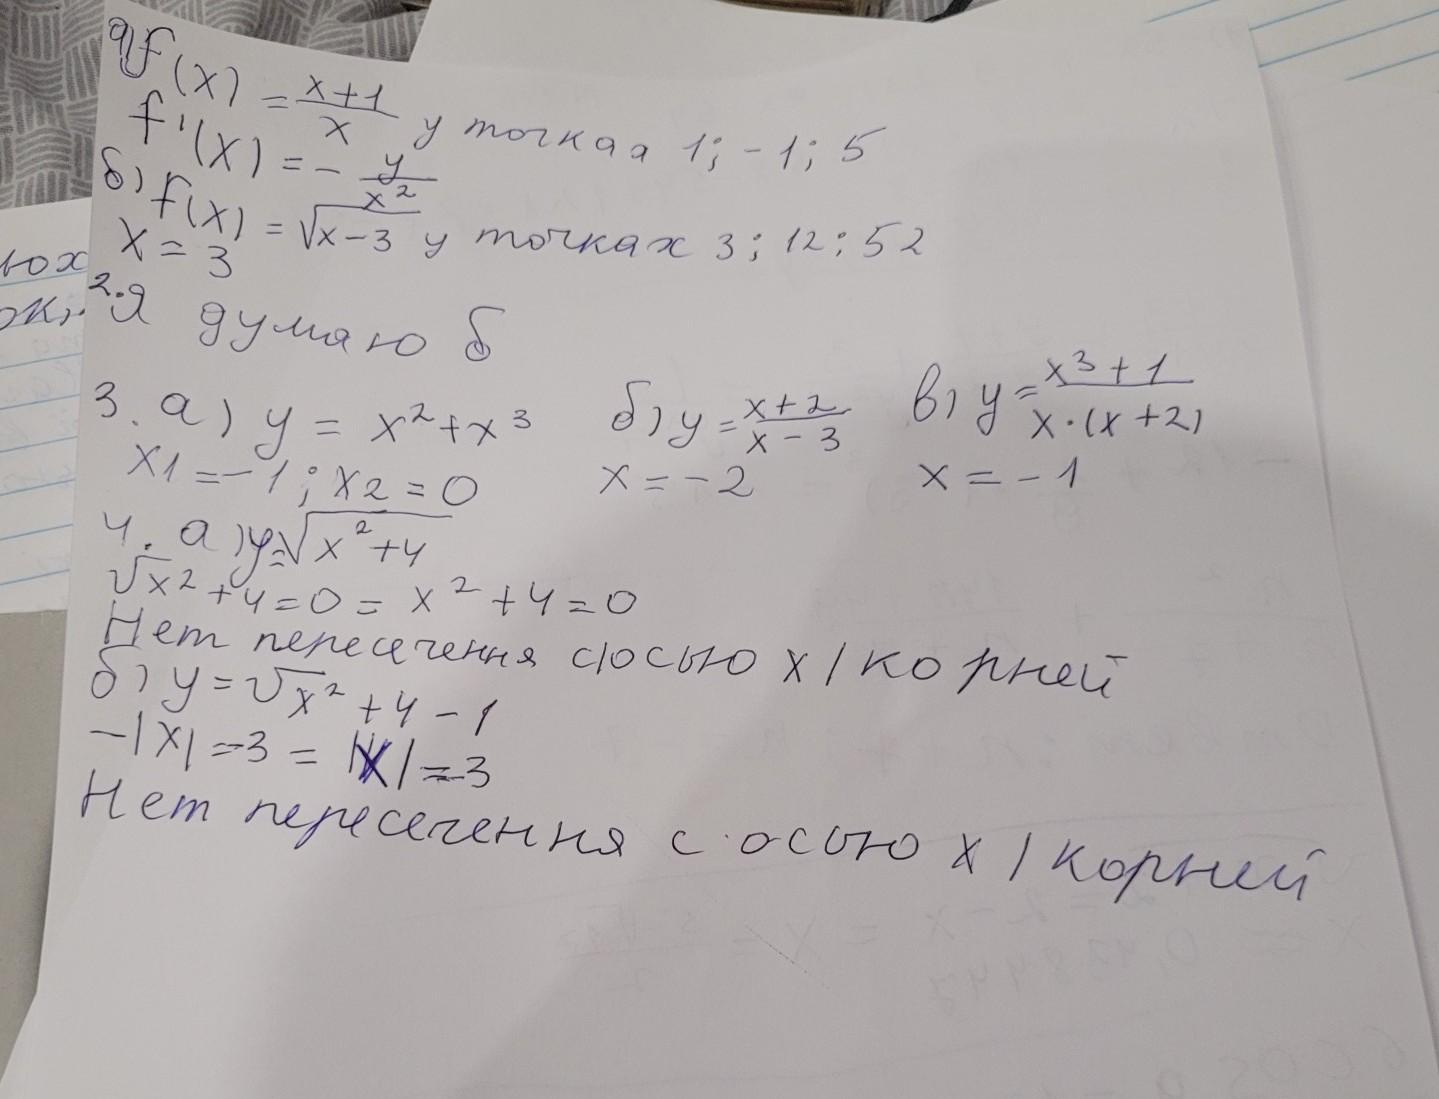 а) f(x) = x+1/x у точкая 1; -1; 5
f'(x) = - y/x²
б) f(x) = √x-3 у точках 3; 12; 52
x = 3
2. Я думаю б
3. а) y = x²+x³ б) y = x+2/x-3 в) y = x³+1/x·(x+2)
x1 = -1; x2 = 0 x = -2 x = -1
4. а) y = √x²+4
√x²+4=0 = x²+4=0
Нет пересечення с/осью x / корней
б) y = √x²+4-1
-|x| = -3 = |x| = -3
Нет пересечення с осью x / корней